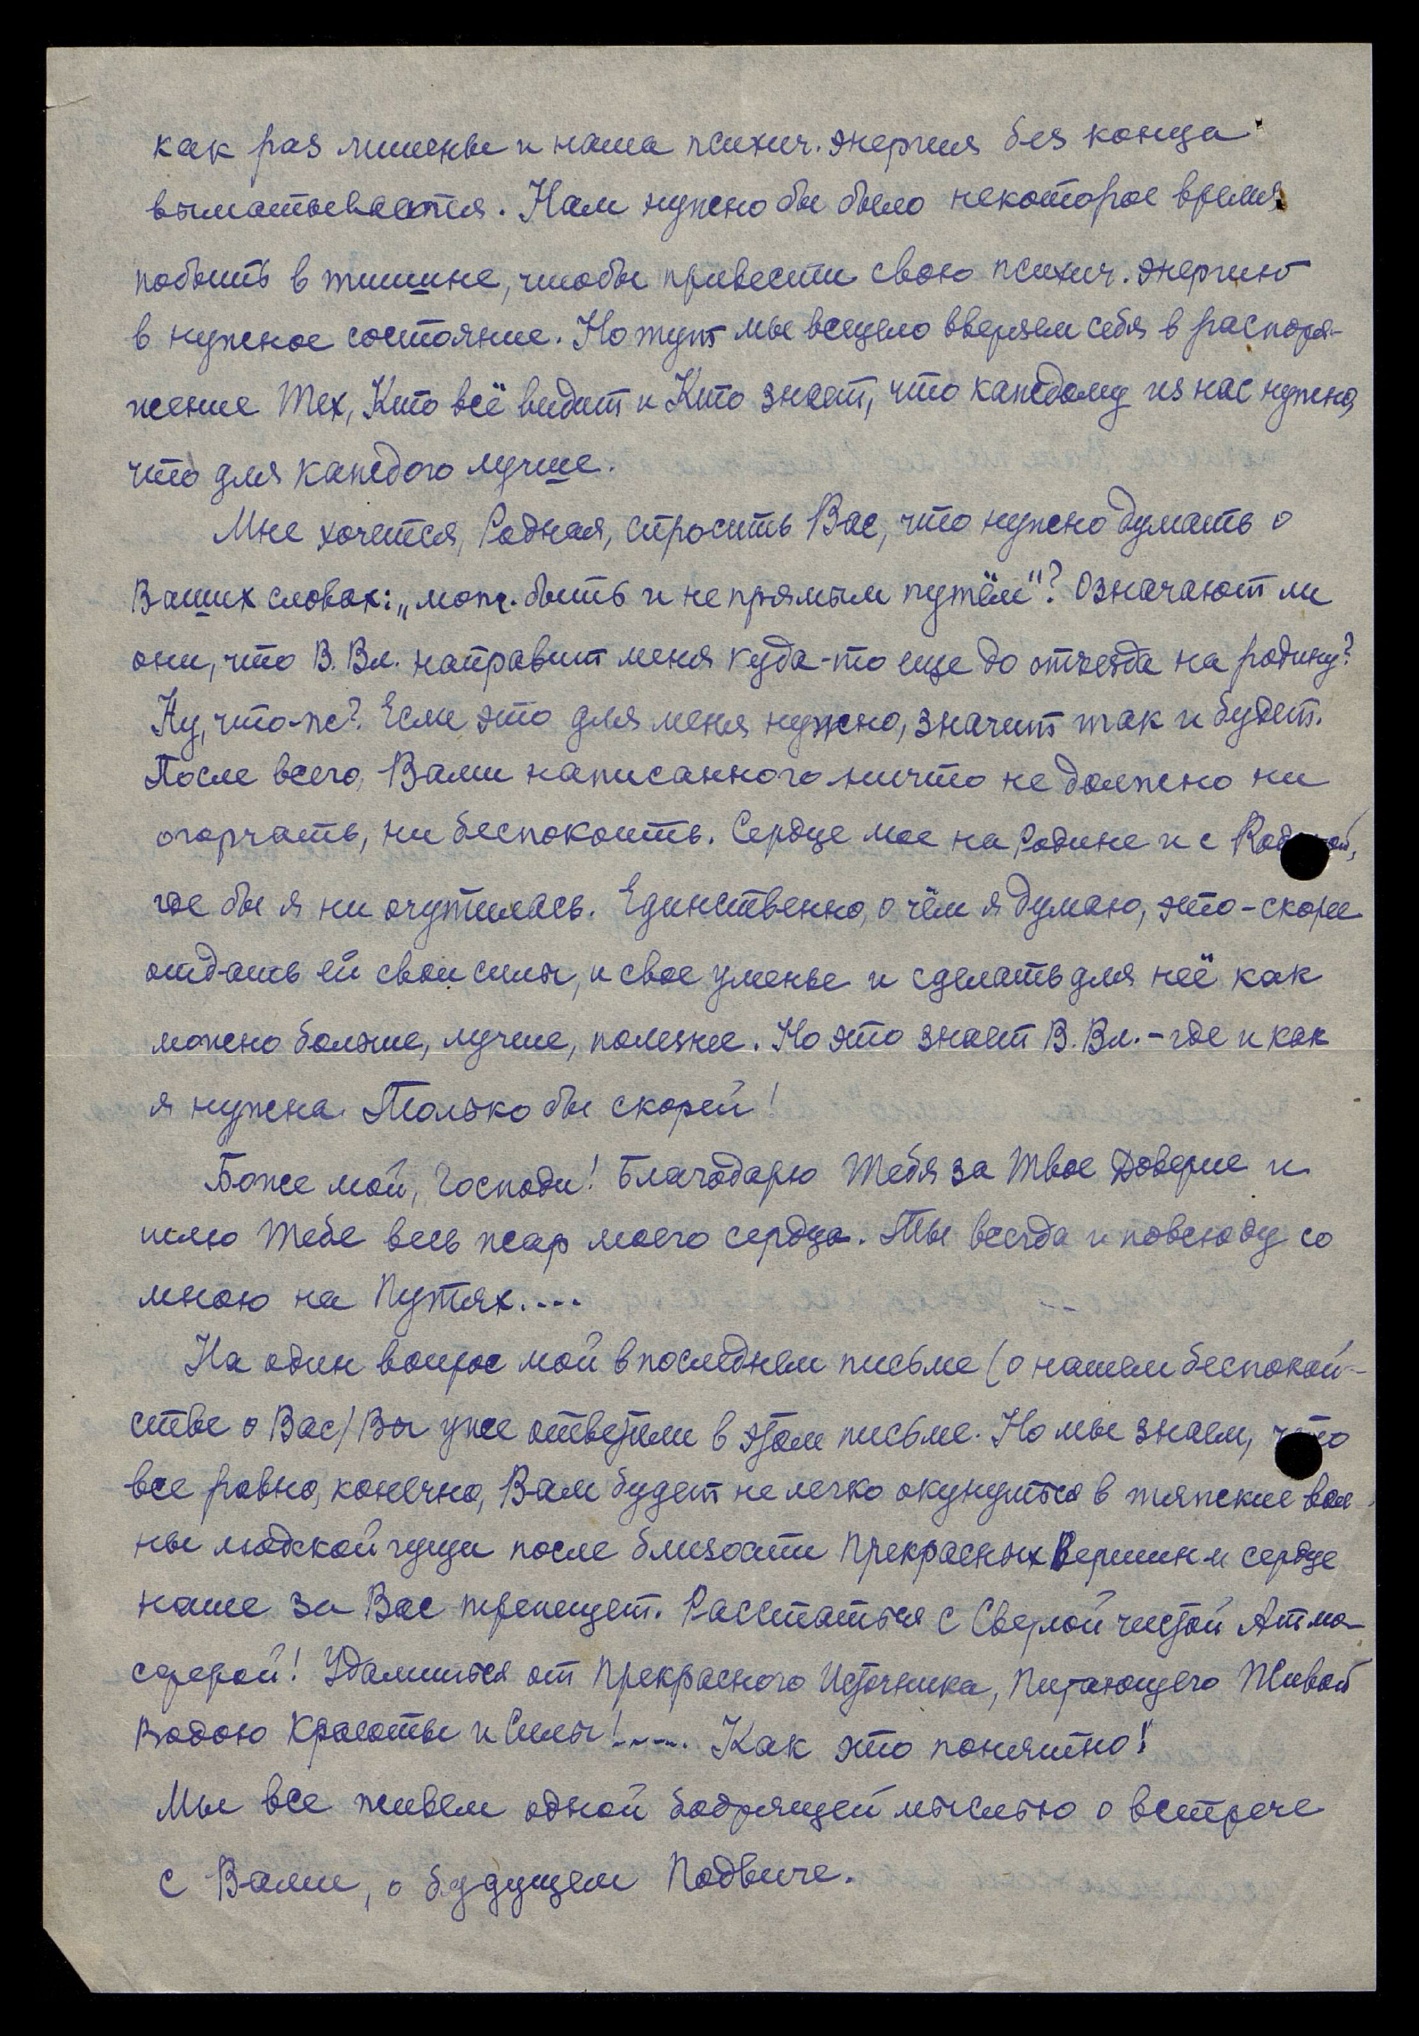 как раз лишены и наша психич. энергия без конца
выматывается. Нам нужно бы было некоторое время
побыть в тишине, чтобы привести свою психич. энергию
в нужное состояние. Но тут мы всецело вверяем себя в распоря-
жение Тех, Кто всё видит и Кто знает, что каждому из нас нужно,
что для каждого лучше.
Мне хочется, Родная, спросить Вас, что нужно думать о
Ваших словах: „мож. быть и не прямым путём"? Означают ли
они, что В. Вл. направит меня куда-то еще до отъезда на родину?
Ну, что-ж? Если это для меня нужно, значит так и будет.
После всего, Вами написанного ничто не должно ни
огорчать, ни беспокоить. Сердце мое на Родине и с Родиной,
где бы я ни очутилась. Единственно, о чём я думаю, это – скорее
отдать ей свои силы, и свое уменье и сделать для неё как
можно больше, лучше, полезнее. Но это знает В. Вл. – где и как
я нужна. Только бы скорей!
Боже мой, Господи! Благодарю Тебя за Твое Доверие и
шлю Тебе весь жар моего сердца. Ты всегда и повсюду со
мною на Путях....
На один вопрос мой в последнем письме (о нашем беспокой-
стве о Вас) Вы уже ответили в этом письме. Но мы знаем, что
все равно, конечно, Вам будет не легко окунуться в тяжкие вол-
ны людской гущи после близости Прекрасных Вершин и сердце
наше за Вас трепещет. Расстаться с Светлой чистой Атмо-
сферой! Удалиться от Прекрасного Источника, Питающего Живой
Водою Красоты и Силы!..... Как это понятно!
Мы все живем одной бодрящей мыслью о встрече
с Вами, о будущем Подвиге.